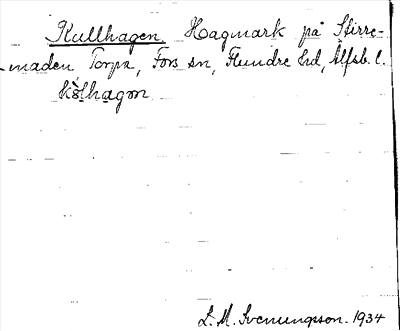 Kullhagen Hagmark på Stirre-
maden Torpa, Fors sn, Flundre hd, Älfsb. l.
kölhagon
L. M. Svenungsson. 1934